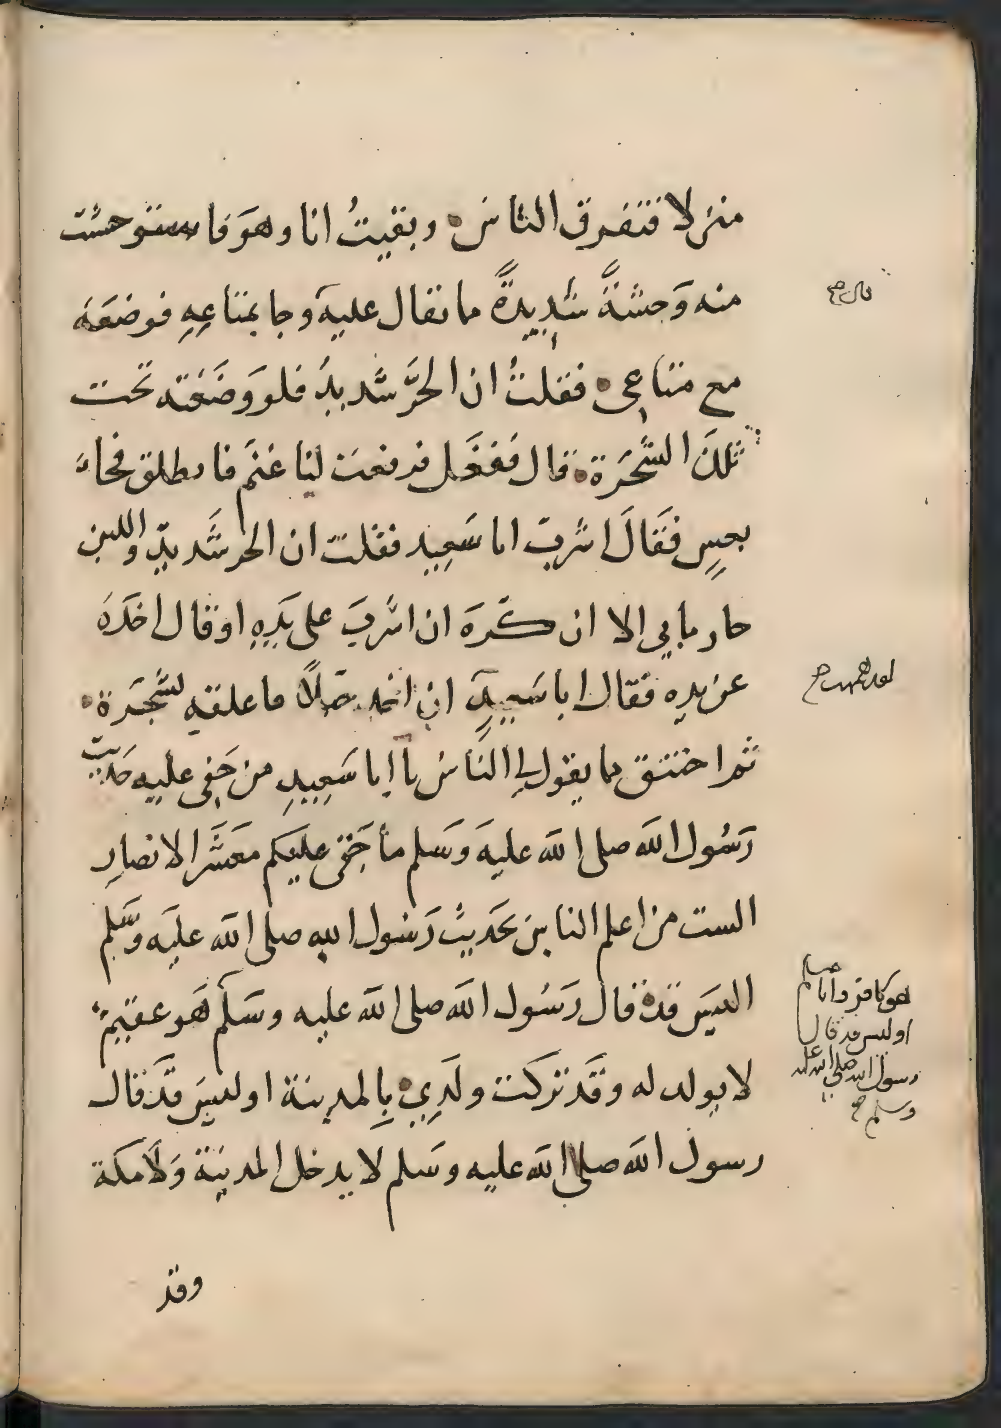 منزلا فتفرق الناس وبقيتُ انا وهوَ فاستوحشت
منه وَحشةً شَدِيدةً مما نقال عليهَ وجا بمتاعِهِ فوضعَهُ
مع متاعي فقلتُ ان الحرَّ شَديدُ فلو وَضَعَته تحت
تلكَ الشَّجَرة قال ففعَل فرفعت لنا غنمَ فانطلق فجاءَ
بعسٍ فَقَالَ اشرب ابا سَعِيد فقلت ان الحر شَديدٌ واللبن
حار ما بي الا ان كَره ان اشربَ على يَدِهِ او قال اخذَهُ
عن يدِه فقال ابا سَعِيدٍ لقد هممت ان اخذ حبلًا فاعلقه بشَجَرة
ثم اختنق مما يقول لي الناس يا ابا سَعِيدِ من خَفِي عليه حَديث
رَسُول الله صلى الله عليهَ وَسَلم ما خَفي عليكم معَشَر الانصارِ
الست من اعلم الناس بحَديث رَسُول الله صلى الله عليه وسَلم
اليسَ قد قال رَسُول الله صلى الله عليه وسَلم هَو عقيمٌ
لا يولد له وقَد تركت ولَدِي بِالمدينة اوليسَ قَد قال
رسول الله صلى الله عليه وسَلم لا يدخل المدينَة وَلَا مكة
وقد
قال صح
لقد هممت صح
هو كافر وانا مسلم
اوليس قد قال
رسول الله صلى الله عليه
وسلم صح